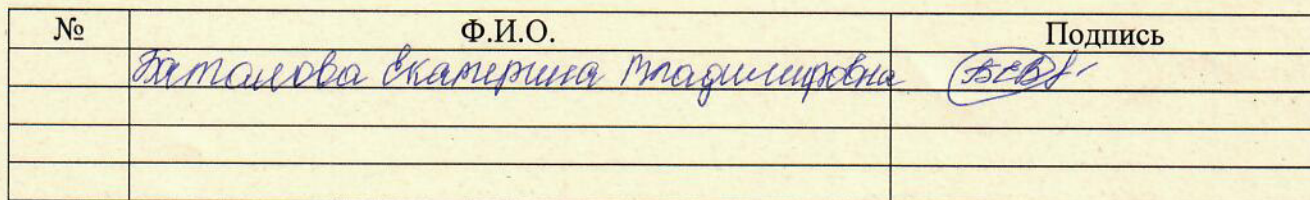 № Ф.И.О. Подпись
Баталова Екатерина Владимировна БЕВ